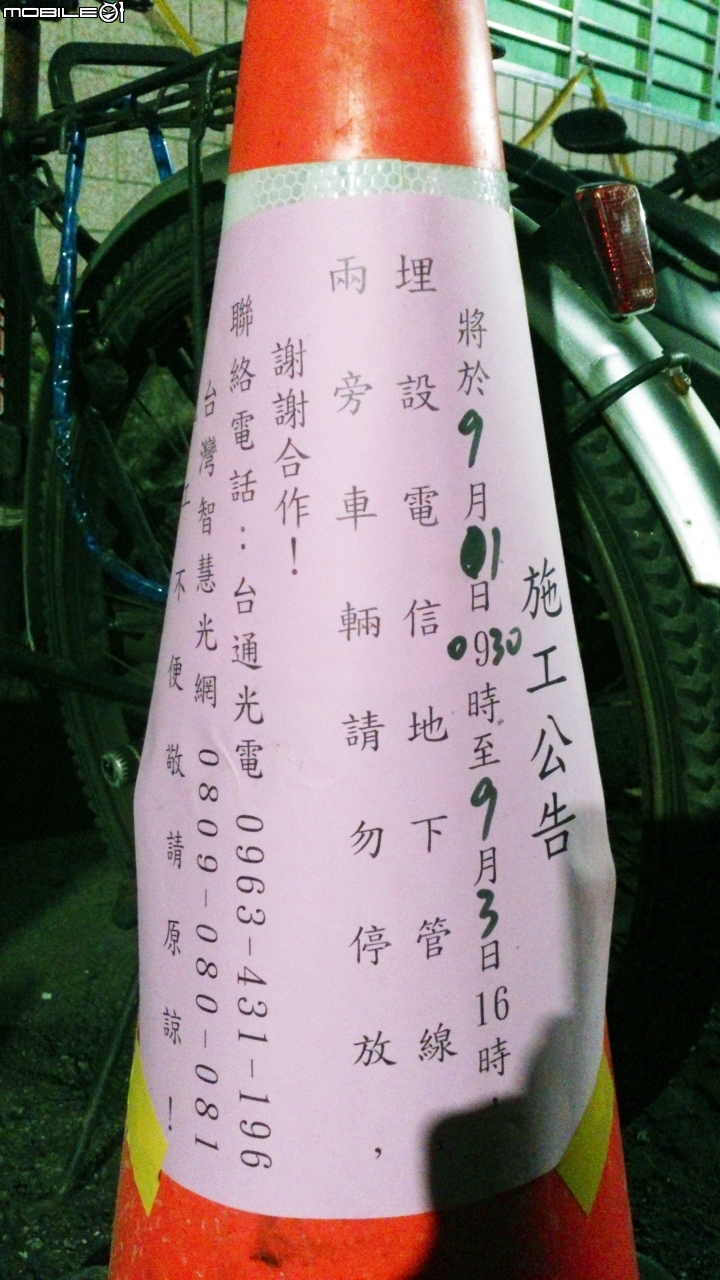 MOBILE01
施工公告
將於9月01日0930時至9月3日16時，
埋設電信地下管線
兩旁車輛請勿停放，
謝謝合作！
聯絡電話：台通光電 0963-431-196
台灣智慧光網 0809-080-081
工不便敬請原諒！